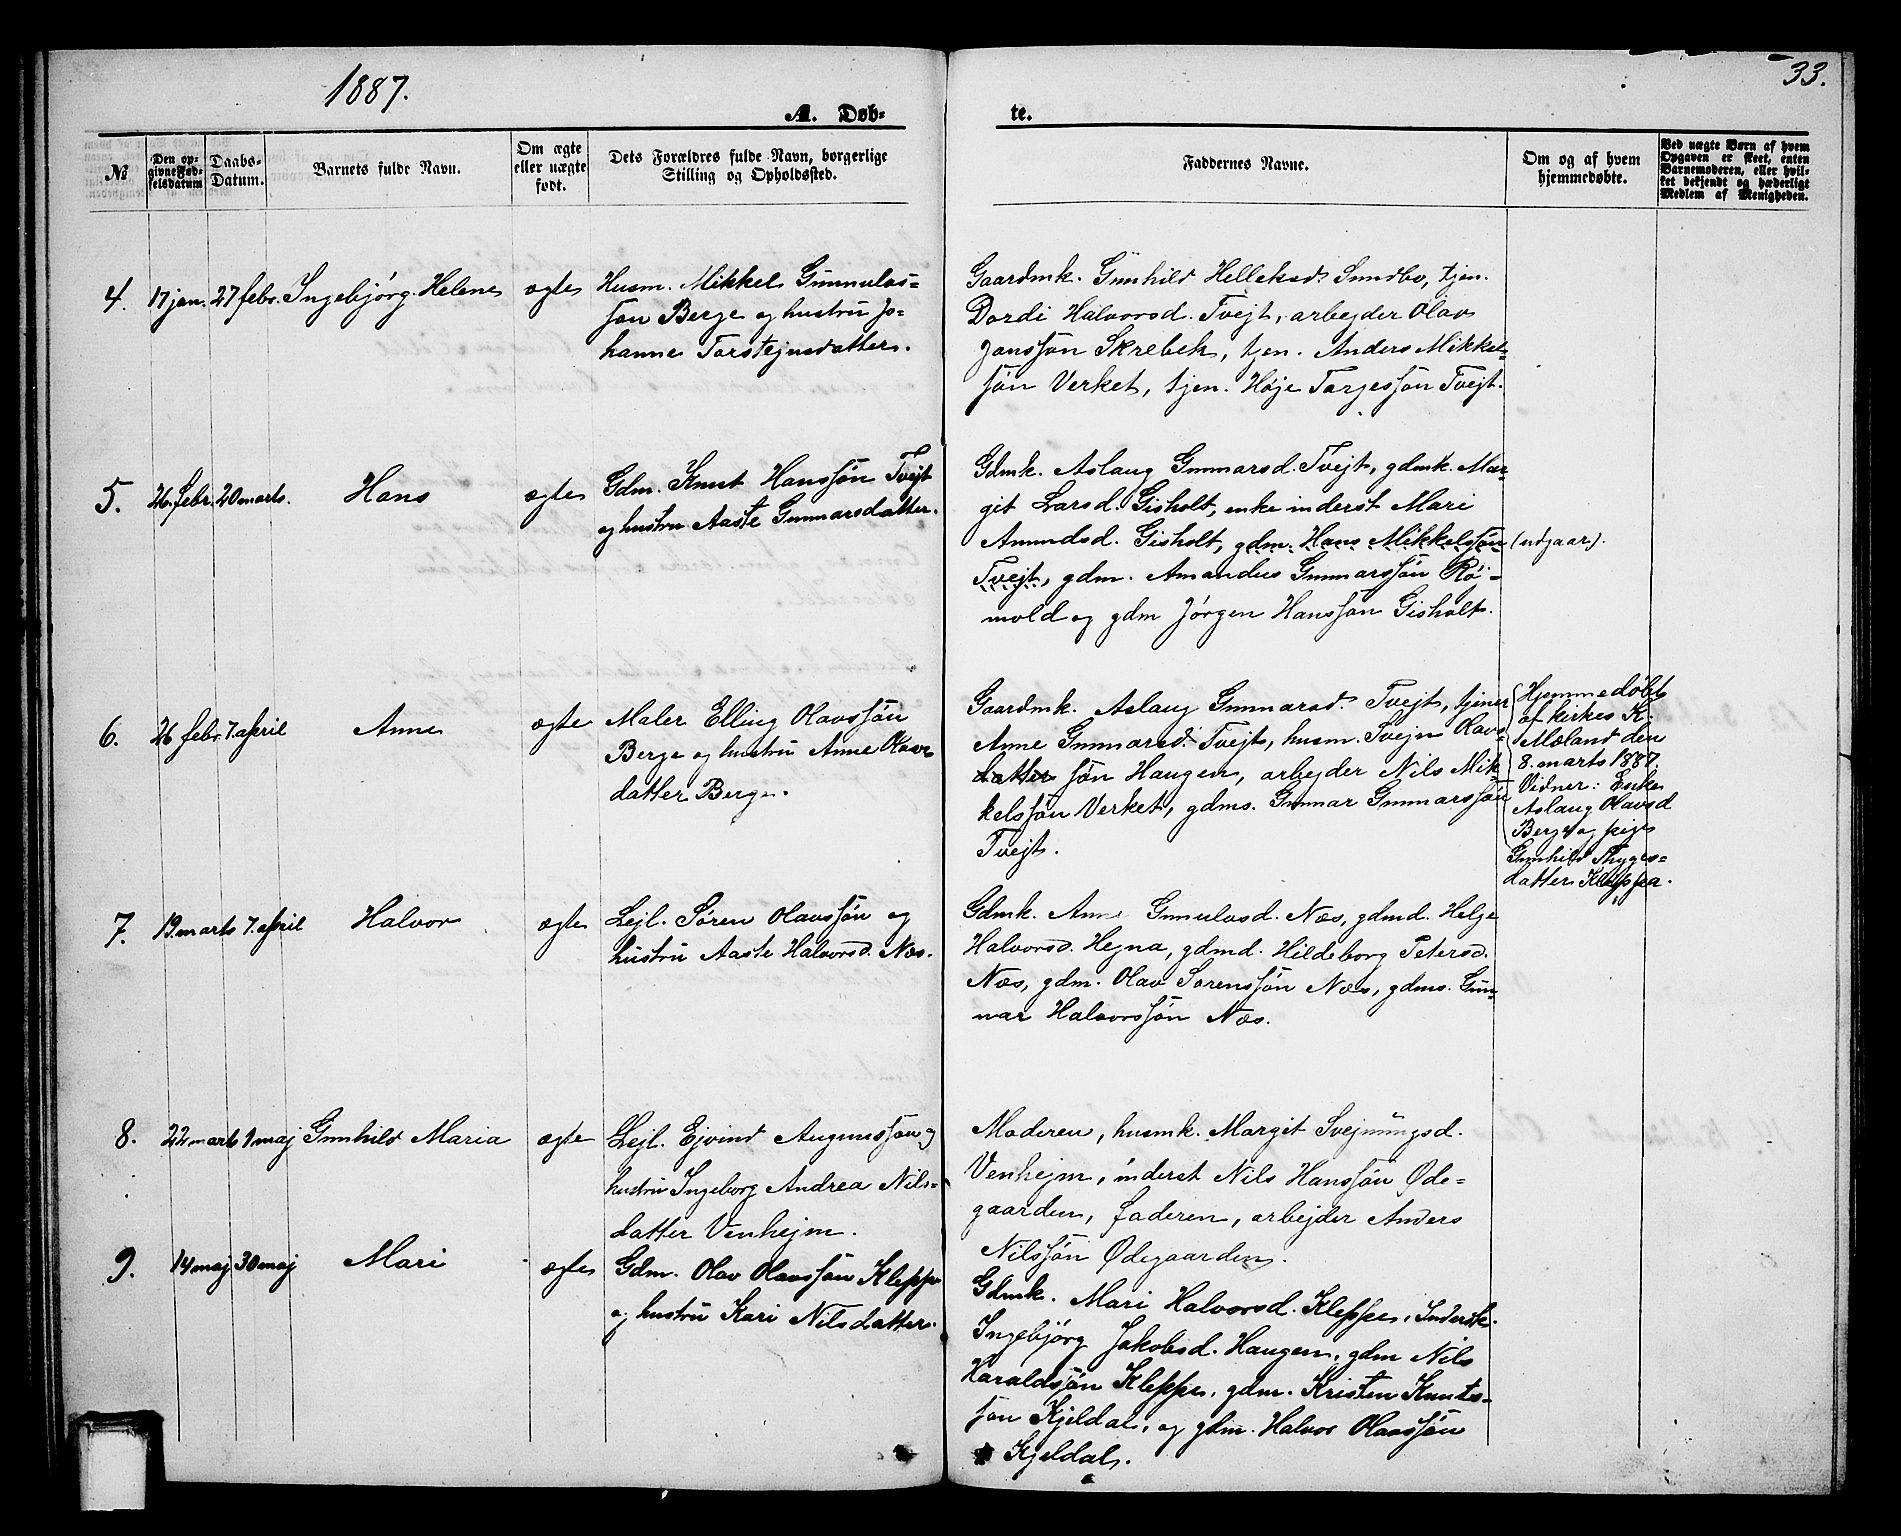 1887.
33.
A. Døb-
te.
№
Den op-
givne Fød-
selsdatum
Daabs-
Datum.
Barnets fulde Navn.
Om ægte
eller uægte
født.
Dets Forældres fulde Navn, borgerlige
Stilling og Opholdssted.
Faddernes Navne.
Om og af hvem
hjemmedøbte.
Ved uægte Børn af hvem
Opgaven er skeet, enten
Barnemoderen, eller hvil-
ket bekjendt og hæderligt
Medlem af Menigheden.
4. 17 jan. 27 febr. Ingebjörg Helene ægte
Husm. Mikkel Gunnulvs-
søn Berge og hustru Jo-
hanne Torstejnsdatter.
Gaardmk. Gunhild Helleksd. Sundbø, tjen.
Dordi Halvorsd. Tvejt, arbejder Olav
Jonssøn Skrebek, tjen. Anders Mikkel-
søn Verket, tjen. Høje Torjessøn Tvejt.
5. 26. febr. 20 marts. Hans ægte
Gdm. Knut Hanssøn Tvejt
og hustru Aaste Gunnarsdatter.
Gdmk. Aslaug Gunnarsd. Tvejt, gdmk. Mar-
git Larsd. Gisholt, enke inderst Mari
Amundsd. Gisholt, gdm. Hans Mikkelssøn (udgaar).
Tvejt, gdm. Amandus Gunnarssøn Røj-
mold og gdm Jörgen Hanssøn Gisholt.
6. 26 febr. 7. april Anne ægte
Maler Elling Olavssøn
Berge og hustru Anne Olavs
datter Berge.
Gaardmk. Aslaug Gunnarsd. Tvejt, tjener
Anne Gunnarsd. Tvejt, husm. Svejn Olavs-
datter søn Haugen, arbejder Nils Mik
kelssøn Verket, gdms. Gunnar Gunnarssøn
Tvejt.
Hjemmedøbt
af kirkes. K.
Mæland den
8. marts 1887.
Vidner: Enke
Aslaug Olavsd
Berge og pige
Gunhild Thyges-
datter Kleppa.
7. 19. marts 7. april Halvor ægte
Lejl. Søren Olavssøn og
hustru Aaste Halvorsd. Næs.
Gdmk. Anne Gunnulvsd. Næs, gdmd. Helge
Halvorsd. Hejna, gdmd. Hildeborg Petersd.
Næs, gdm. Olav Sørenssøn Næs, gdms. Gun-
nar Halvorssøn Næs.
8. 22 marts 1 maj Gunhild Maria ægte
Lejl. Ejvind Augunssøn og
hustru Ingeborg Andrea Nils-
datter Venhejm.
Moderen, husmk. Margit Svejnungsd.
Venhejm, inderst Nils Hanssøn Øde-
gaarden, faderen, arbejder Anders
Nilssøn Ødegaarden.
9. 14 maj 30 maj Mari ægte
Gdm. Olav Olavssøn Kleppe
og hustru Kari Nilsdatter.
Gdmk. Mari Halvorsd. Kleppe, Inderstk.
Ingebjörg Jakobsd. Haugen, gdm Nils
Haraldsøn Kleppe, gdm. Kristen Knuts-
søn Kjeldal, og gdm. Halvor Olavssøn
Kjeldal.